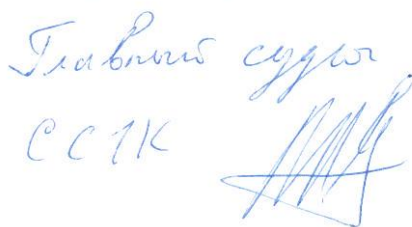 Главный судья
СС1К